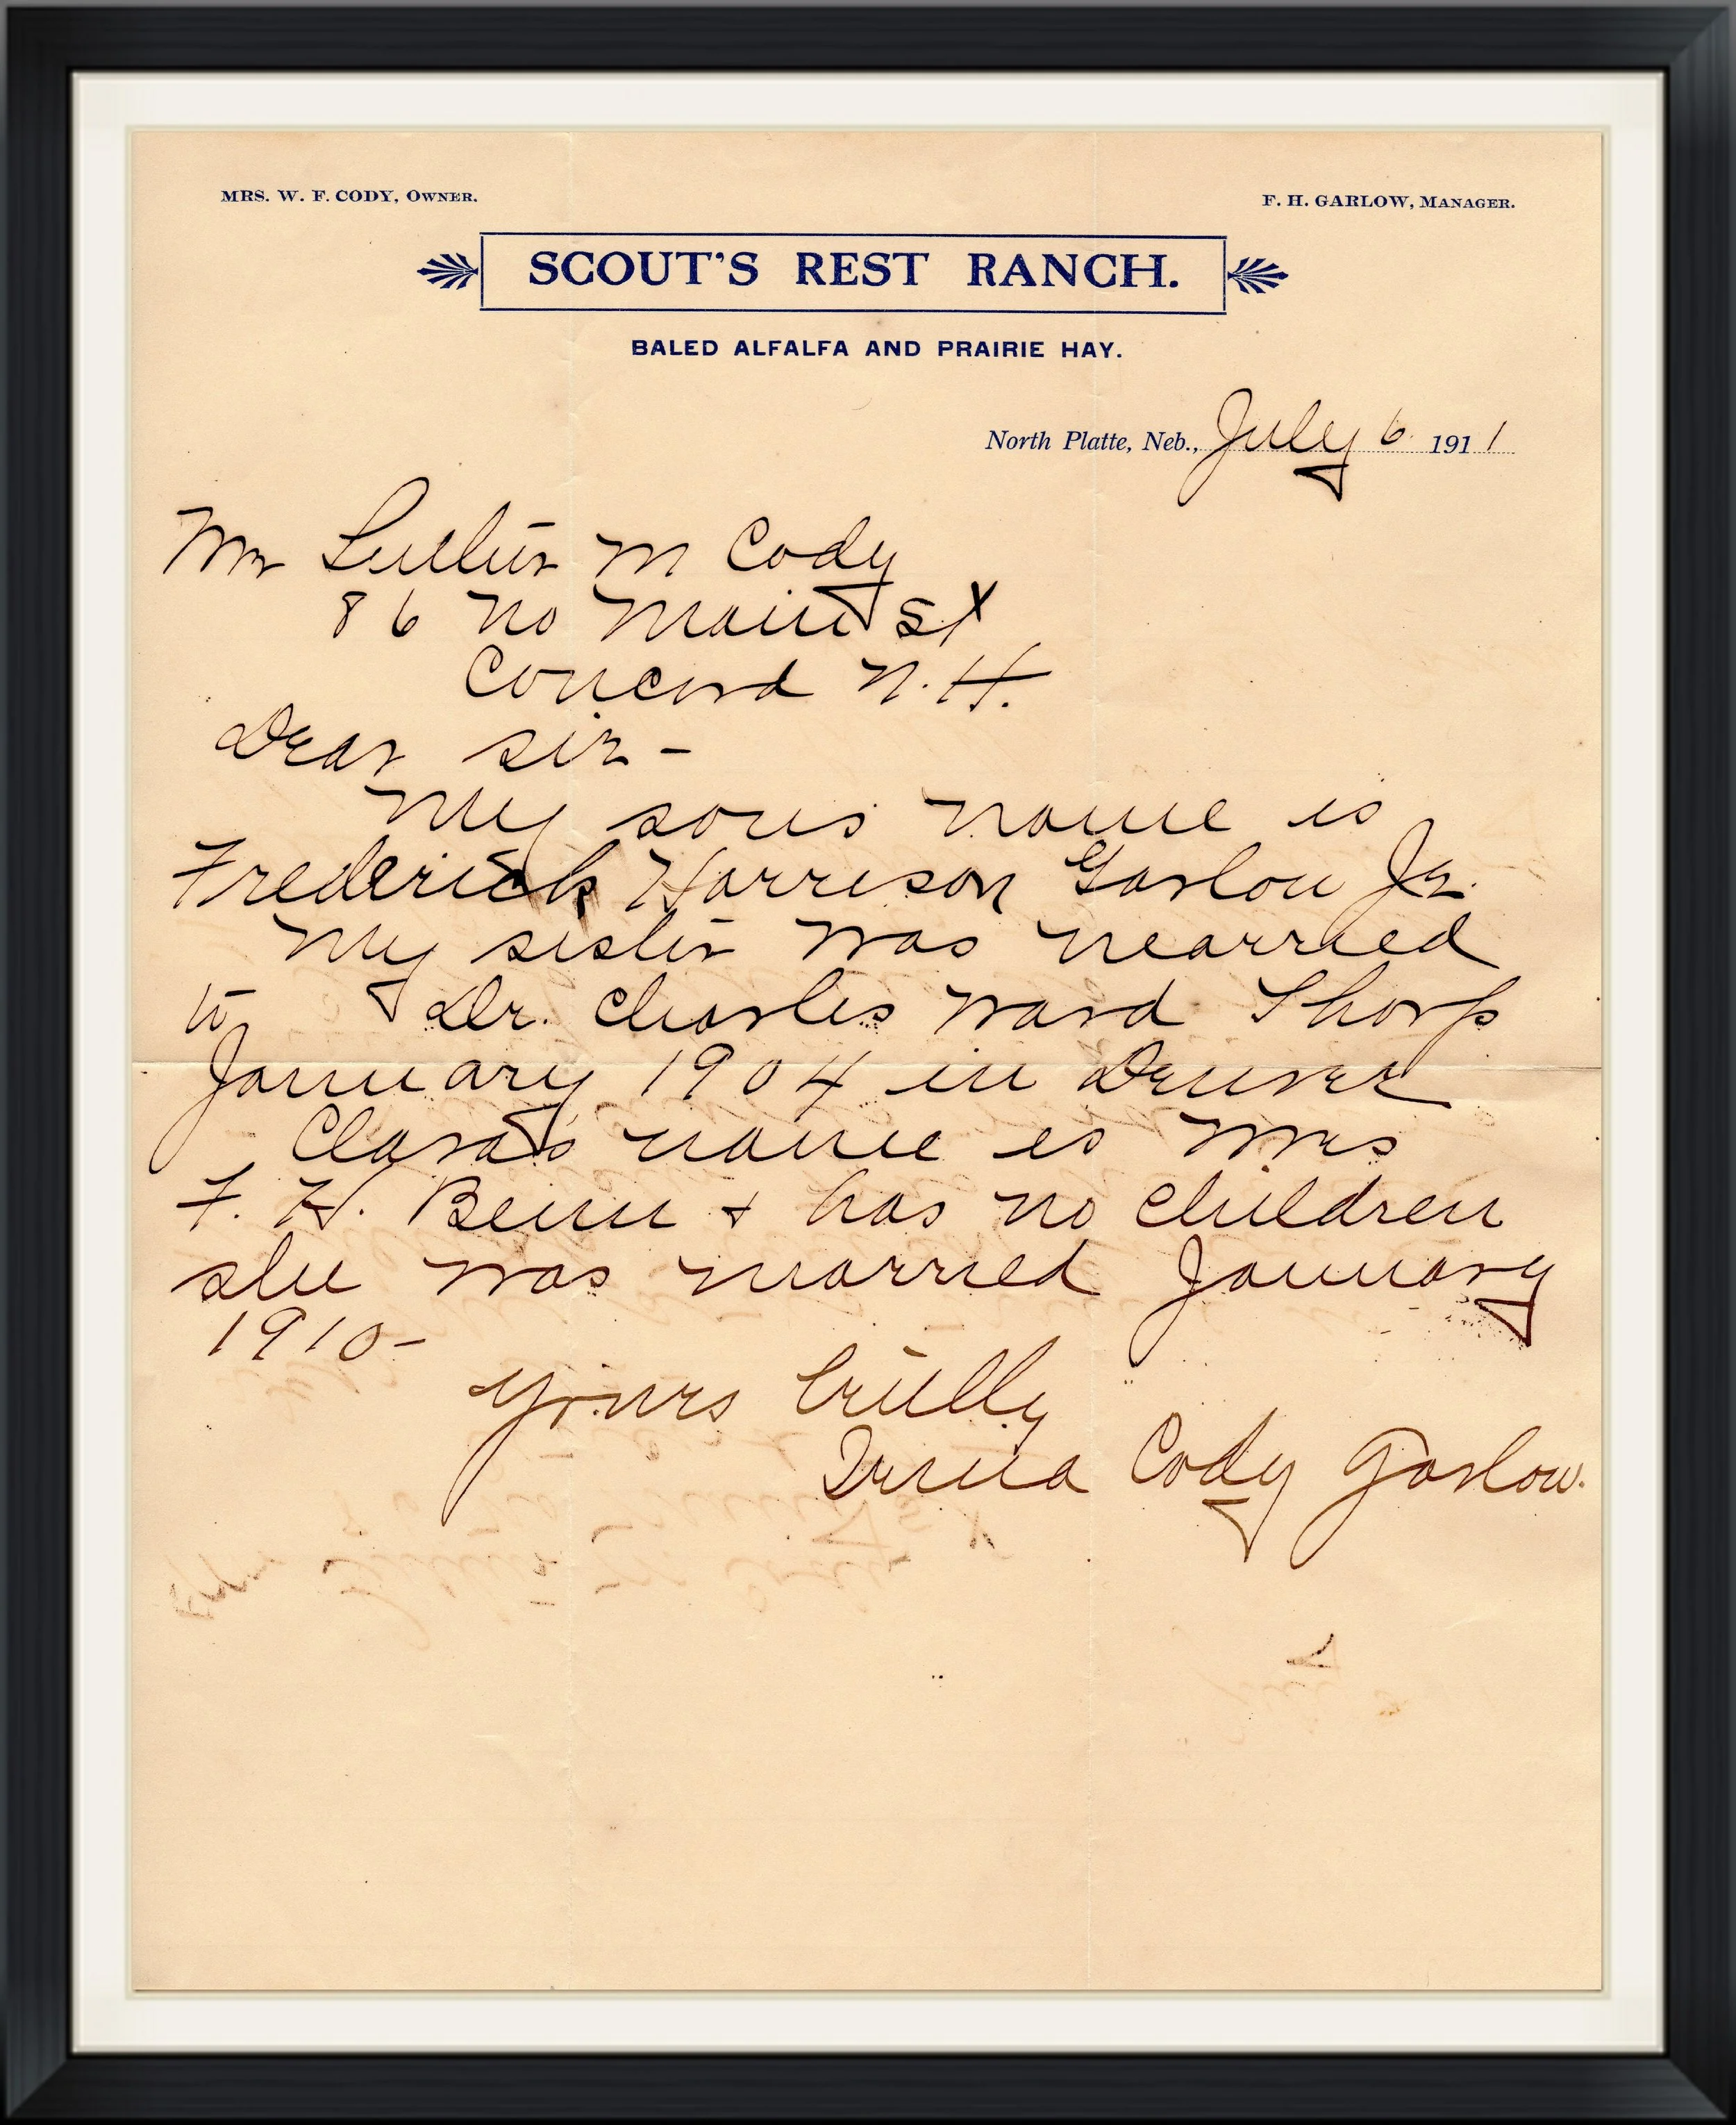 MRS. W. F. CODY, OWNER.
F. H. GARLOW, MANAGER.
SCOUT'S REST RANCH.
BALED ALFALFA AND PRAIRIE HAY.
North Platte, Neb., July 6 1911
Mr Luther M Cody
86 No Main St
Concord N.H.
Dear sir -
My sons name is
Frederick Harrison Garlow Jr.
My sister was married
to Dr. Charles Ward Thorp
January 1904 in Denver
Clara's name is Mrs
F. H. Beim + has no children
she was married January
1910-
Yours trully
Irma Cody Garlow.